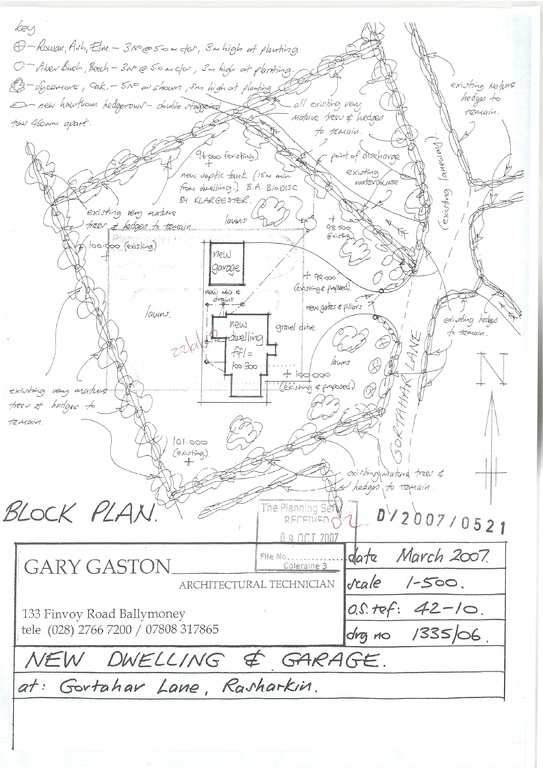 Key
Rowan, Ash, Elm - 3No @ 5.0m c/cs, 3m high at planting.
Silver Birch, Beech - 3No @ 5.0m c/cs, 3m high at planting.
Sycamore, Oak - 5No as shown, 3m high at planting
new hawthorn hedgerows - double staggered
rows 450mm apart.
all existing very
mature trees & hedges
to remain.
existing mature
hedges to
remain.
point of discharge
existing
watercourse
existing laneway
99.000 (existing)
new septic tank (15m min.
from dwelling). B.A. BIODISC
BY KLARGESTER
existing very mature
trees & hedges to remain
100.000 (existing)
lawns
98.500
existing
new
garage
99.000
(existing & proposed)
new gates & pillars
lawns.
new
dwelling
ffl=
100.300
gravel drive
existing hedges
to remain.
lawns
100.000
(existing & proposed)
GORTAHAR LANE
N
existing very mature
trees & hedges to
remain.
101.000
(existing).
existing mature trees &
hedges to remain
BLOCK PLAN.
The Planning Serv
RECEIVED 02
09 OCT 2007
File No.
Coleraine 3
D/2007/0521
GARY GASTON
ARCHITECTURAL TECHNICIAN
133 Finvoy Road Ballymoney
tele (028) 2766 7200 / 07808 317865
date March 2007.
scale 1-500.
o.s. ref: 42-10.
drg no 1335/06.
NEW DWELLING & GARAGE.
at: Gortahar Lane, Rasharkin.